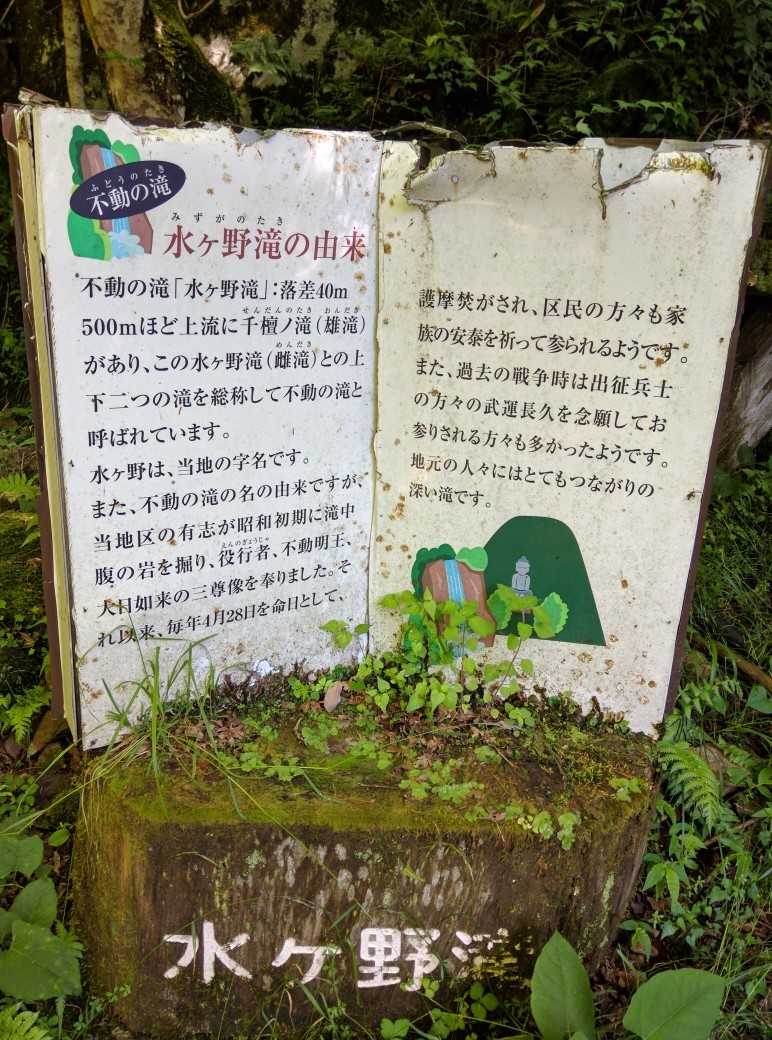 ふどうのたき
不動の滝
みずがのたき
水ヶ野滝の由来
不動の滝「水ヶ野滝」：落差40m
せんだんのたき おんだき
500mほど上流に千檀ノ滝（雄滝）
めんだき
があり、この水ヶ野滝（雌滝）との上
下二つの滝を総称して不動の滝と
呼ばれています。
水ヶ野は、当地の字名です。
また、不動の滝の名の由来ですが、
当地区の有志が昭和初期に滝中
えんのぎょうじゃ
腹の岩を掘り、役行者、不動明王、
大日如来の三尊像を奉りました。そ
れ以来、毎年4月28日を命日として、
護摩焚がされ、区民の方々も家
族の安泰を祈って参られるようです。
また、過去の戦争時は出征兵士
の方々の武運長久を念願してお
参りされる方々も多かったようです。
地元の人々にはとてもつながりの
深い滝です。
水ヶ野滝